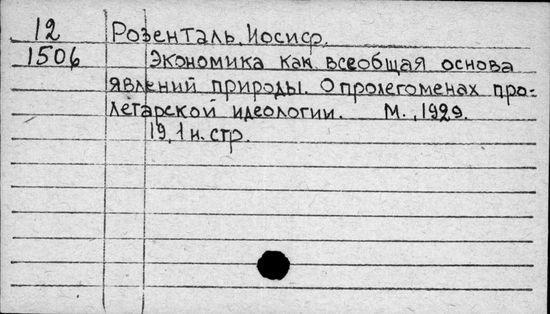 12 Розенталь, Иосиф.
1506 Экономика как всеобщая основа
явлений природы. О пролегоменах про-
летарской идеологии. М., 1929.
19, 1 н. стр.